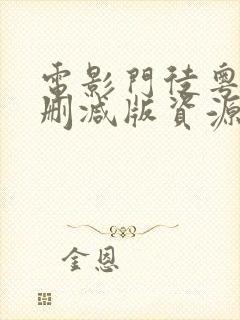 電影門徒粵
刪減版資源
金恩